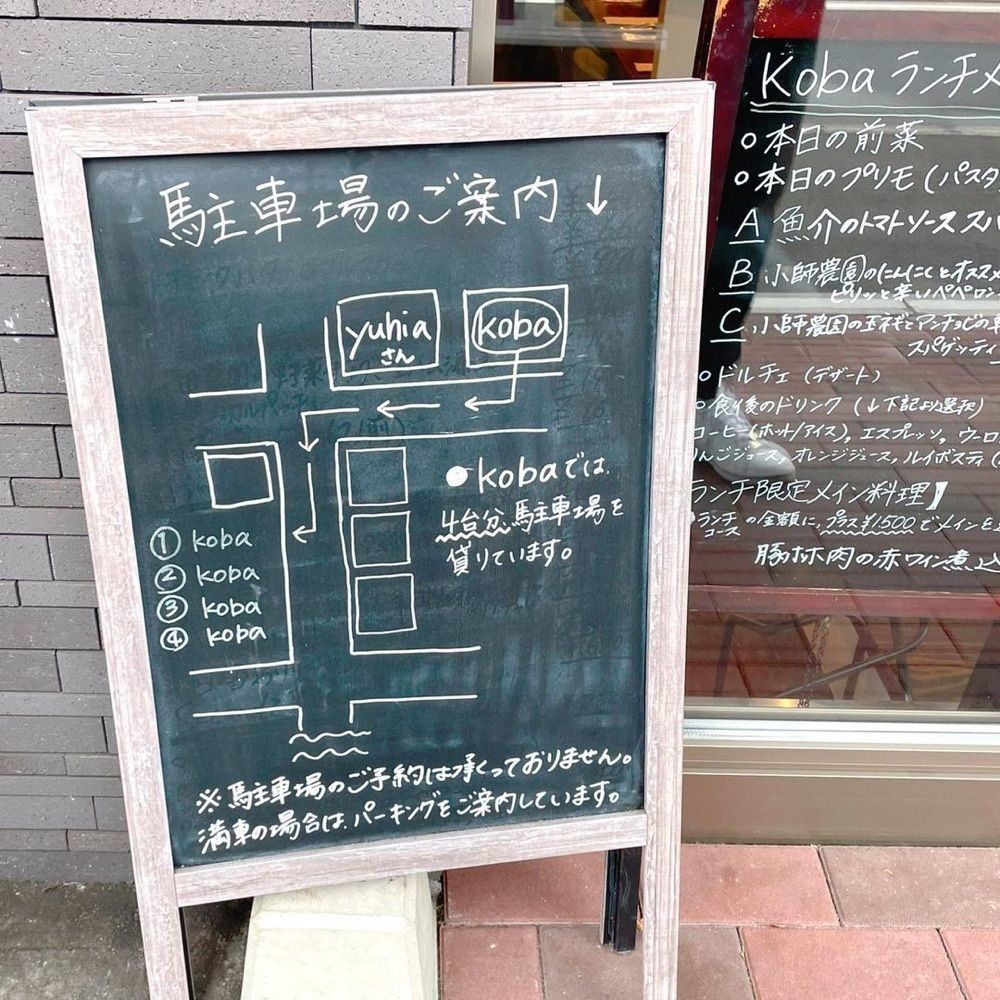 駐車場のご案内↓
yuhia
さん
koba
● kobaでは、
4台分、駐車場を
貸りています。
① koba
② koba
③ koba
④ koba
※駐車場のご予約は承っておりません。
満車の場合は、パーキングをご案内しています。
Koba ランチメ
○本日の前菜
○本日のプリモ(パスタ
A 魚介のトマトソース スパ
B 小師農園のにんにくとオススメ
ピリッと辛いペペロン
C 小師農園の玉ネギとアンチョビの
スパゲッティ
○ドルチェ(デザート)
○食後のドリンク(↓下記より選択)
コーヒー(ホット/アイス)、エスプレッソ、ウーロ
りんごジュース、オレンジジュース、ルイボスティ(
ランチ限定メイン料理】
ランチコースの金額に、プラス¥1500でメインを
豚ホホ肉の赤ワイン煮込